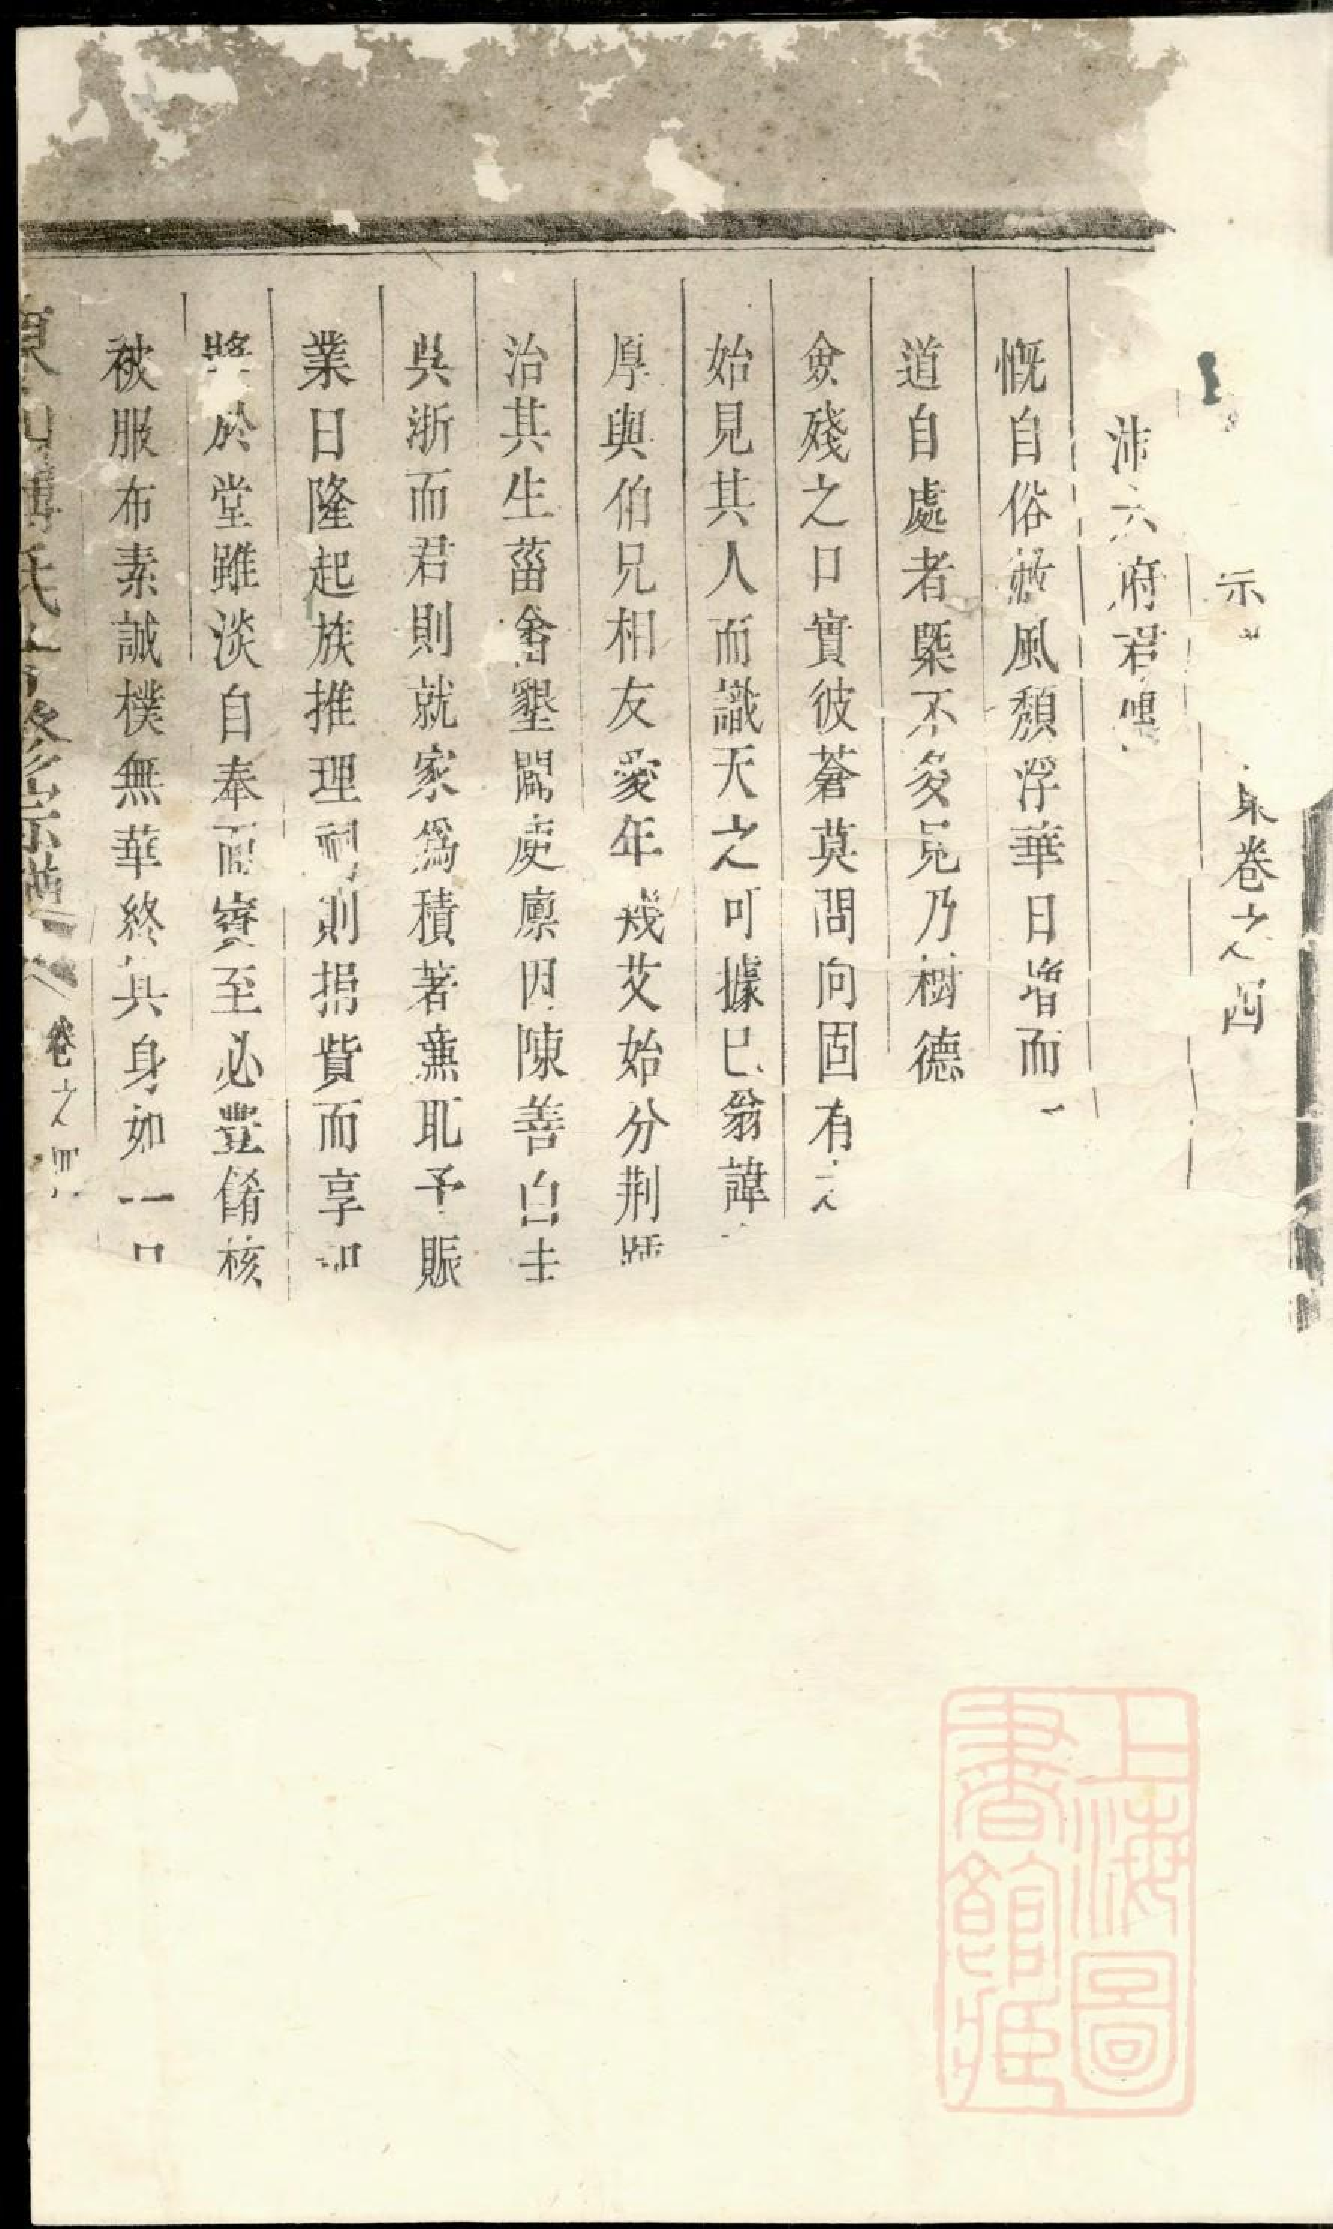 卷之四
沛六府君
慨自俗敝風頹浮華日增而
道自處者槩不多見乃樹德
僉殘之口實彼蒼莫問向固有
始見其人而識天之可據已翁諱
厚與伯兄相友愛年幾艾始分荆
治其生菑畬墾闢庾廪因陳善白圭
吳浙而君則就家爲積著無耻予賑
業日隆起族推理祠則捐貲而享
將於堂雖淡自奉而賓至必豐餚核
被服布素誠樸無華終其身如一日
氏 修宗譜 卷之四
上海圖
書館藏